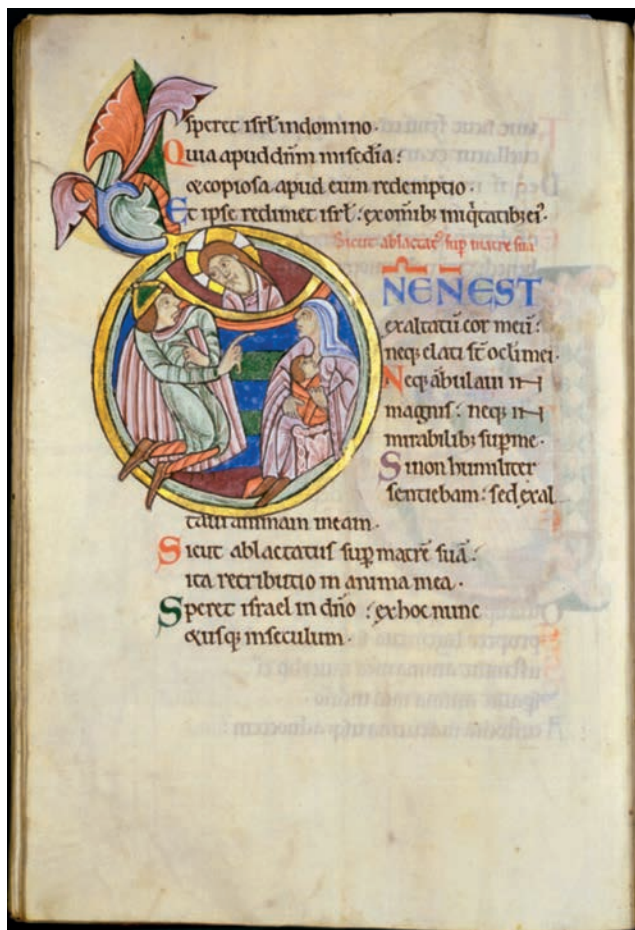 speret isrł in domino·
Quia apud dñm misedia:
& copiosa apud eum redemptio·
Et ipse redimet isrł: ex omib; iniq̇tatib; ei᾽·
Sicut ablactat᾽ sup matre sua
D NE N EST
exaltatū cor meū:
neq; elati st̄ oc̄li mei·
Neq; ābulaui in
magnis: neq; in
mirabilib; sup me·
Si non humiliter
sentiebam: sed exal
taui animam meam·
Sicut ablactatus sup matrē suā:
ita retributio in anima mea·
Speret israel in dn̄o: ex hoc nunc
& usq; in seculum·